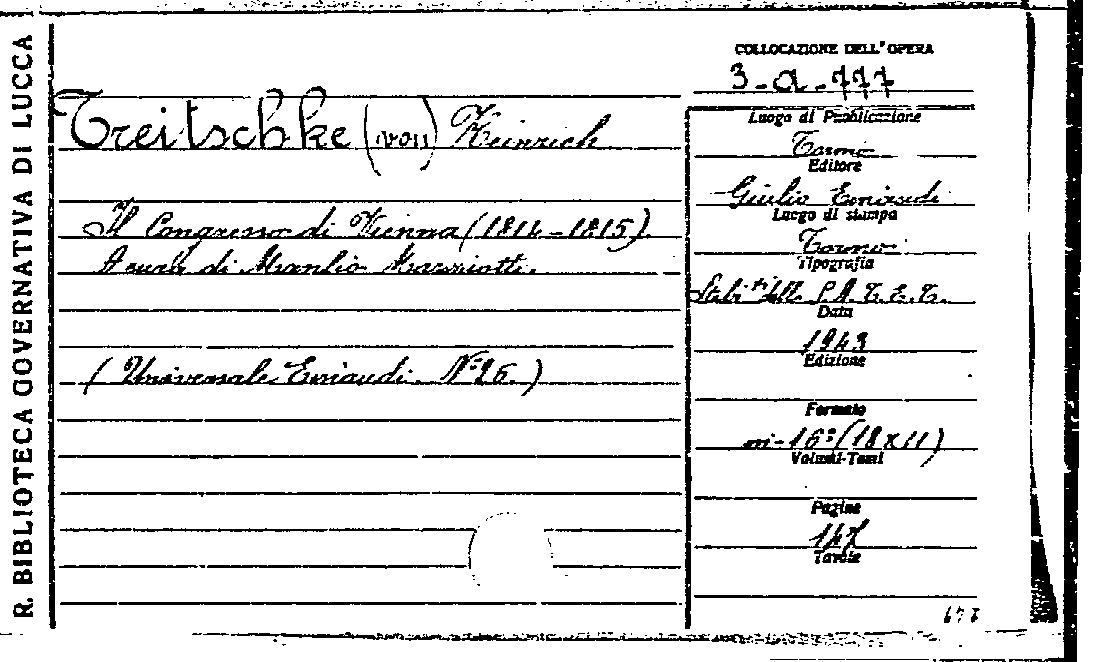 R. BIBLIOTECA GOVERNATIVA DI LUCCA
Treitschke (von) Heinrich
Il Congresso di Vienna (1814-1815).
A cura di Manlio Mazziotti.
(Universale Einaudi. N.º 26.)
COLLOCAZIONE DELL'OPERA
3-a-777
Luogo di Pubblicazione
Torino
Editore
Giulio Einaudi
Luogo di stampa
Torino
Tipografia
Stabi.ti della S.A.T.E.T.
Data
1943
Edizione
Formato
in-16º (18x11)
Volumi-Tomi
Pagine
147
Tavole